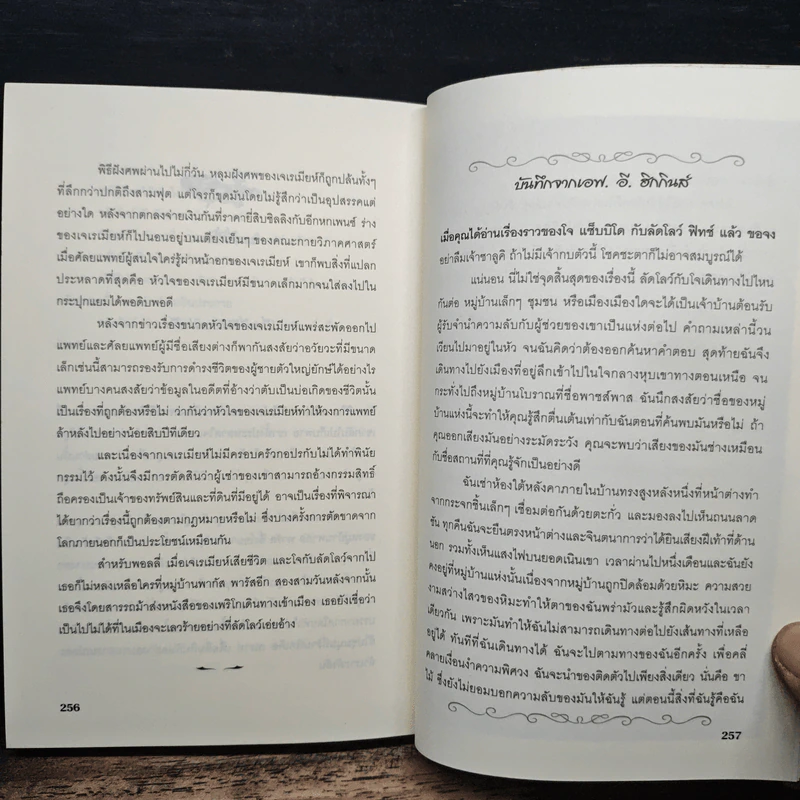 พิธีฝังศพผ่านไปไม่กี่วัน หลุมฝังศพของเจเรไมย์ก็ถูกปล้นทั้งๆ
ที่ลึกกว่าปกติถึงสามฟุต แต่โจรก็ขุดมันโดยไม่รู้สึกว่าเป็นอุปสรรคแต่
อย่างใด หลังจากตกลงจ่ายเงินกันที่ราคายี่สิบชิลลิงกับอีกหกเพนซ์ ร่าง
ของเจเรไมย์ก็ไปนอนอยู่บนเตียงเย็นๆ ของคณะกายวิภาคศาสตร์
เมื่อศัลยแพทย์ผู้สนใจใคร่รู้ผ่าหน้าอกของเจเรไมย์ เขาก็พบสิ่งที่แปลก
ประหลาดที่สุดคือ หัวใจของเจเรไมย์มีขนาดเล็กมากจนใส่ลงไปใน
กระปุกแยมได้พอดิบพอดี
หลังจากข่าวเรื่องขนาดหัวใจของเจเรไมย์แพร่สะพัดออกไป
แพทย์และศัลยแพทย์ผู้มีชื่อเสียงต่างก็พากันสงสัยว่าอวัยวะที่มีขนาด
เล็กเช่นนี้สามารถรองรับการดำรงชีวิตของผู้ชายตัวใหญ่ยักษ์ได้อย่างไร
แพทย์บางคนสงสัยว่าข้อมูลในอดีตที่อ้างว่าตับเป็นบ่อเกิดของชีวิตนั้น
เป็นเรื่องที่ถูกต้องหรือไม่ ว่ากันว่าหัวใจของเจเรไมย์ทำให้วงการแพทย์
ล้าหลังไปอย่างน้อยสิบปีทีเดียว
และเนื่องจากเจเรไมย์ไม่มีครอบครัวกอปรกับไม่ได้ทำพินัย
กรรมไว้ ดังนั้นจึงมีการตัดสินว่าผู้เช่าของเขาสามารถอ้างกรรมสิทธิ์
ถือครองเป็นเจ้าของทรัพย์สินและที่ดินที่มีอยู่ได้ อาจเป็นเรื่องที่พิจารณา
ได้ยากว่าเรื่องนี้ถูกต้องตามกฎหมายหรือไม่ ซึ่งบางครั้งการตัดขาดจาก
โลกภายนอกก็เป็นประโยชน์เหมือนกัน
สำหรับพอลลี่ เมื่อเจเรไมย์เสียชีวิต และโจกับลัดโลว์จากไป
เธอก็ไม่หลงเหลือใครที่หมู่บ้านพากัส พารัสอีก สองสามวันหลังจากนั้น
เธอจึงโดยสารรถม้าส่งหนังสือของเพริโกเดินทางเข้าเมือง เธอยังเชื่อว่า
เป็นไปไม่ได้ที่ในเมืองจะเลวร้ายอย่างที่ลัดโลว์เอ่ยอ้าง
256
บันทึกจากเอฟ. อี. ฮิกกินส์
เมื่อคุณได้อ่านเรื่องราวของโจ แซ็บบิโด กับลัดโลว์ ฟิทช์ แล้ว ขอจง
อย่าลืมเจ้าซาลูคิ ถ้าไม่มีเจ้ากบตัวนี้ โชคชะตาก็ไม่อาจสมบูรณ์ได้
แน่นอน นี่ไม่ใช่จุดสิ้นสุดของเรื่องนี้ ลัดโลว์กับโจเดินทางไปไหน
กันต่อ หมู่บ้านเล็กๆ ชุมชน หรือเมืองเมืองใดจะได้เป็นเจ้าบ้านต้อนรับ
ผู้รับจำนำความลับกับผู้ช่วยของเขาเป็นแห่งต่อไป คำถามเหล่านี้วน
เวียนไปมาอยู่ในหัว จนฉันคิดว่าต้องออกค้นหาคำตอบ สุดท้ายฉันจึง
เดินทางไปยังเมืองที่อยู่ลึกเข้าไปในใจกลางหุบเขาทางตอนเหนือ จน
กระทั่งไปถึงหมู่บ้านโบราณที่ชื่อพาซส์พาส ฉันนึกสงสัยว่าชื่อของหมู่
บ้านแห่งนี้จะทำให้คุณรู้สึกตื่นเต้นเท่ากับฉันตอนที่ค้นพบมันหรือไม่ ถ้า
คุณออกเสียงมันอย่างระมัดระวัง คุณจะพบว่าเสียงของมันช่างเหมือน
กับชื่อสถานที่ที่คุณรู้จักเป็นอย่างดี
ฉันเช่าห้องใต้หลังคาภายในบ้านทรงสูงหลังหนึ่งที่หน้าต่างทำ
จากกระจกชิ้นเล็กๆ เชื่อมต่อกันด้วยตะกั่ว และมองลงไปเห็นถนนลาด
ชัน ทุกคืนฉันจะยืนตรงหน้าต่างและจินตนาการว่าได้ยินเสียงฝีเท้าที่ด้าน
นอก รวมทั้งเห็นแสงไฟบนยอดเนินเขา เวลาผ่านไปหนึ่งเดือนและฉันยัง
คงอยู่ที่หมู่บ้านแห่งนั้นเนื่องจากหมู่บ้านถูกปิดล้อมด้วยหิมะ ความสวย
งามสว่างไสวของหิมะทำให้ตาของฉันพร่ามัวและรู้สึกผิดหวังในเวลา
เดียวกัน เพราะมันทำให้ฉันไม่สามารถเดินทางต่อไปยังเส้นทางที่เหลือ
อยู่ได้ ทันทีที่ฉันเดินทางได้ ฉันจะไปตามทางของฉันอีกครั้ง เพื่อคลี่
คลายเงื่อนงำความพิศวง ฉันจะนำของติดตัวไปเพียงสิ่งเดียว นั่นคือ ขา
ไม้ ซึ่งยังไม่ยอมบอกความลับของมันให้ฉันรู้ แต่ตอนนี้สิ่งที่ฉันรู้คือฉัน
257